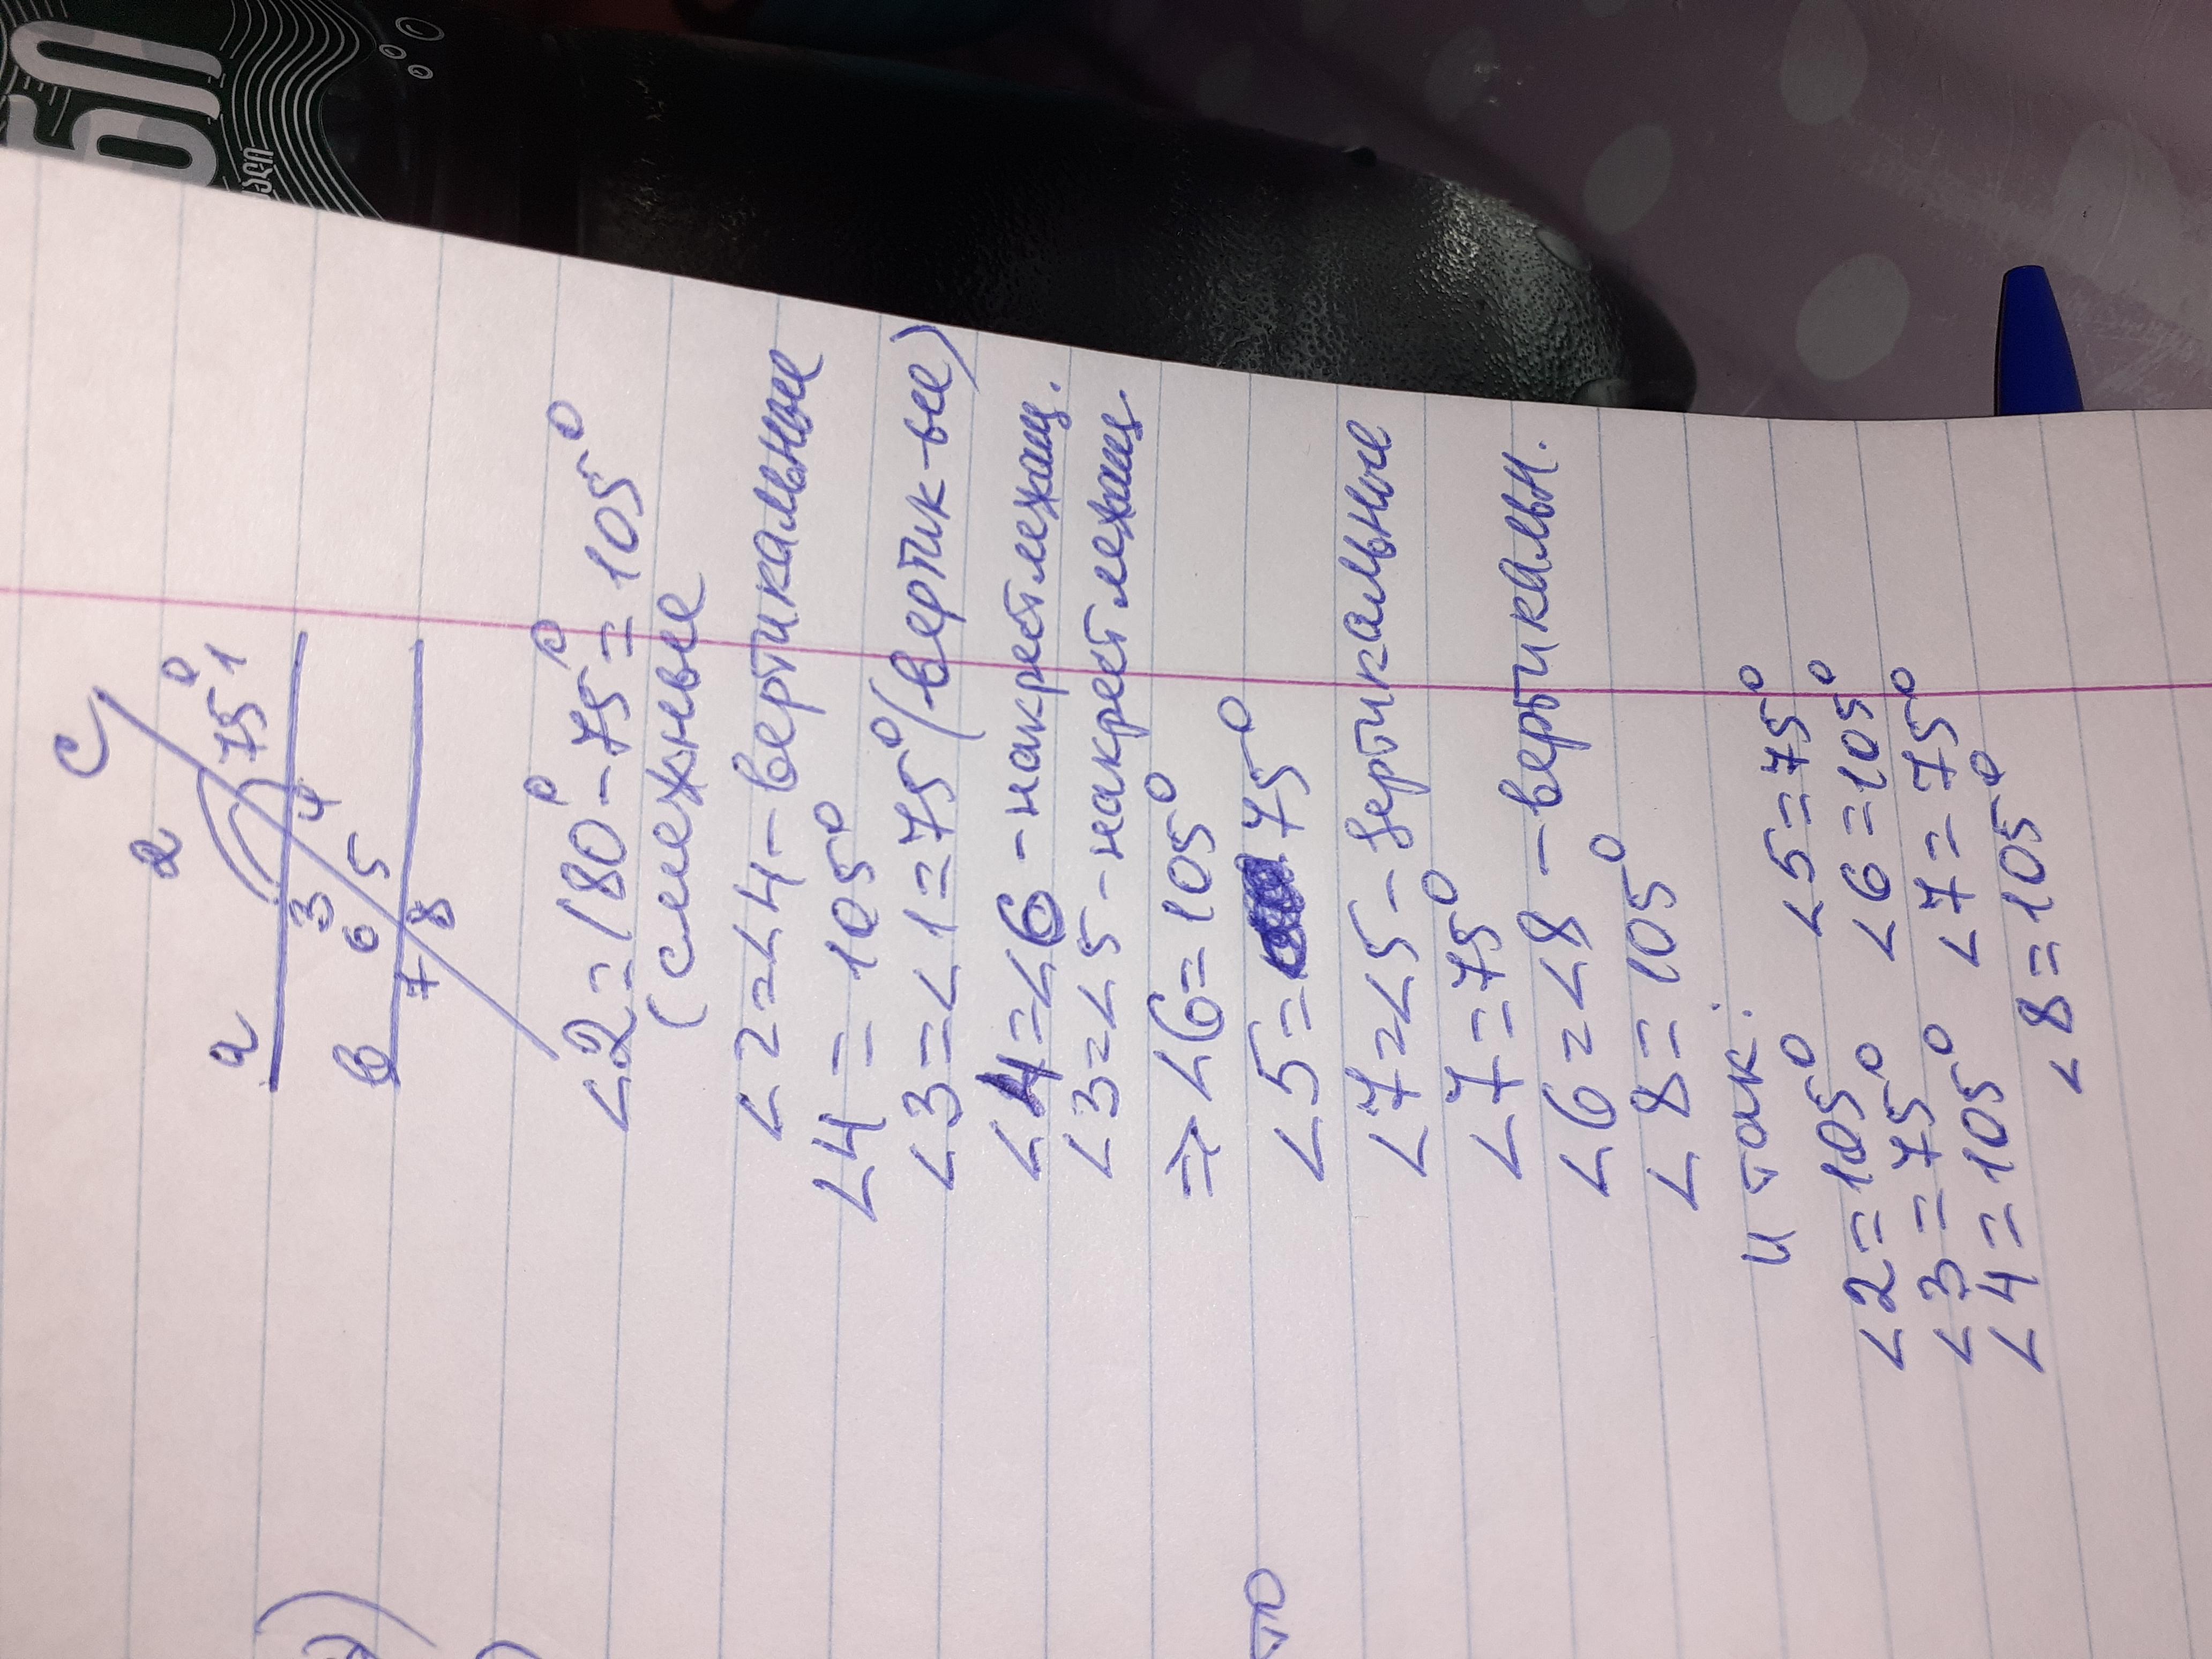 c
2
75° 1
a
3 4
6 5
b
7 8
<2=180°-75°=105°
(смежные
<2=<4-вертикальные
<4=105°
<3=<1=75°(вертик-ые)
<4=<6-накрестлежащ.
<3=<5-накрестлежащ.
=> <6=105°
<5= 75°
<7=<5-вертикальные
<7=75°
<6=<8-вертикальн.
<8=105°
и так:
<2=105° <5=75°
<3=75° <6=105°
<4=105° <7=75°
<8=105°
то
50